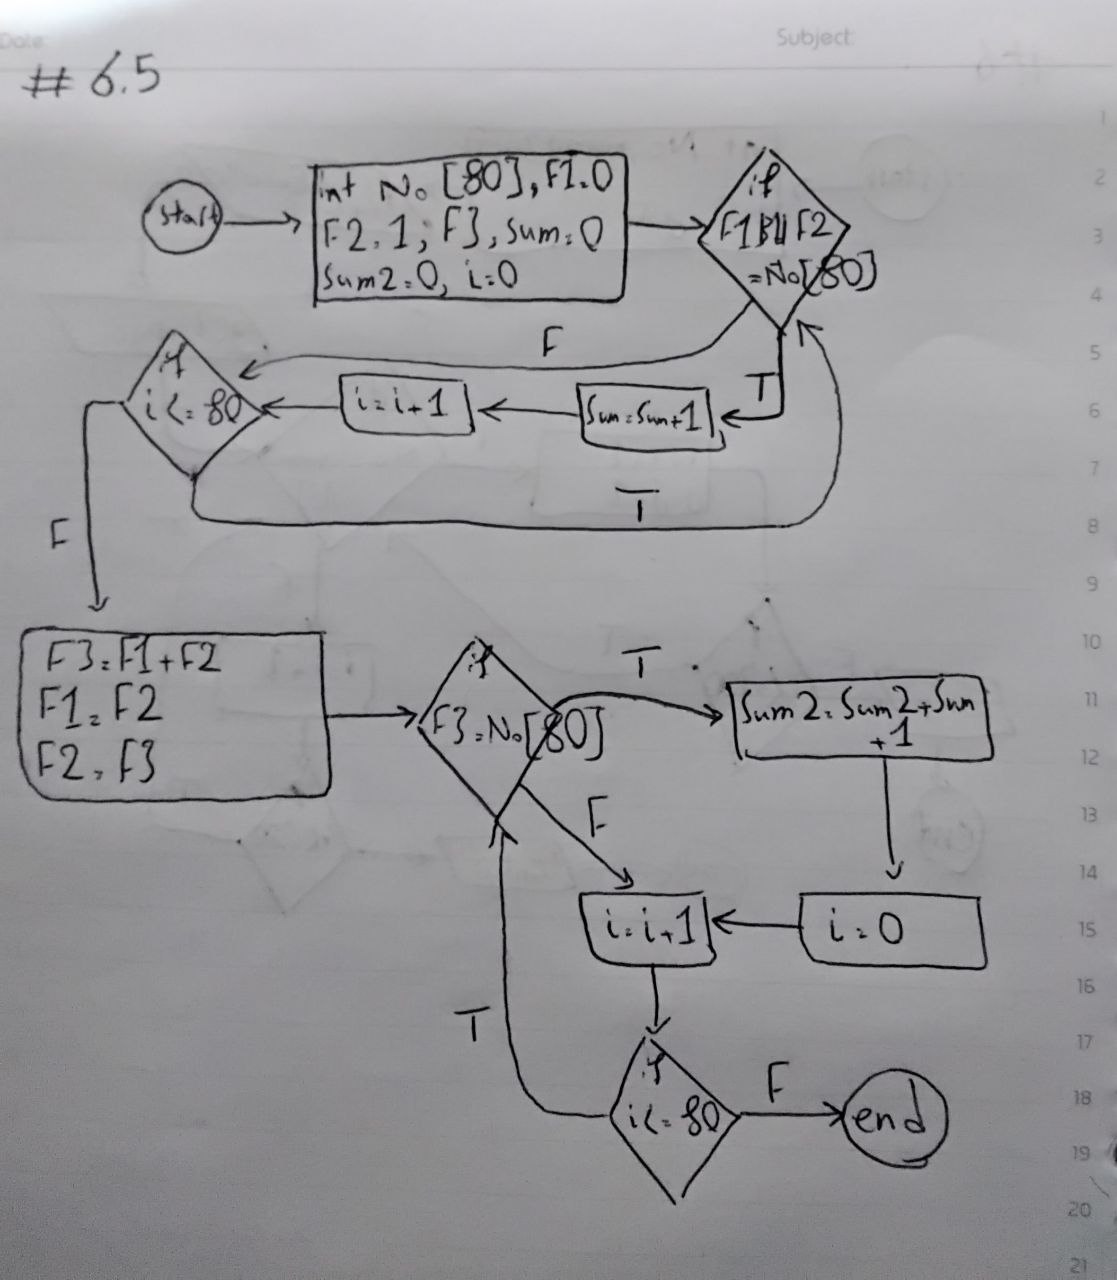 Date
Subject
# 6.5
start
int No [80], F1=0
F2=1; F3, sum=0
sum2=0, i=0
if
F1 || F2
=No[80]
F
T
if
i<=80
i=i+1
Sum=Sum+1
T
F
F3=F1+F2
F1=F2
F2=F3
if
F3=No[80]
T
Sum2=Sum2+Sum
+1
F
i=i+1
i=0
T
if
i<=80
F
end
1
2
3
4
5
6
7
8
9
10
11
12
13
14
15
16
17
18
19
20
21